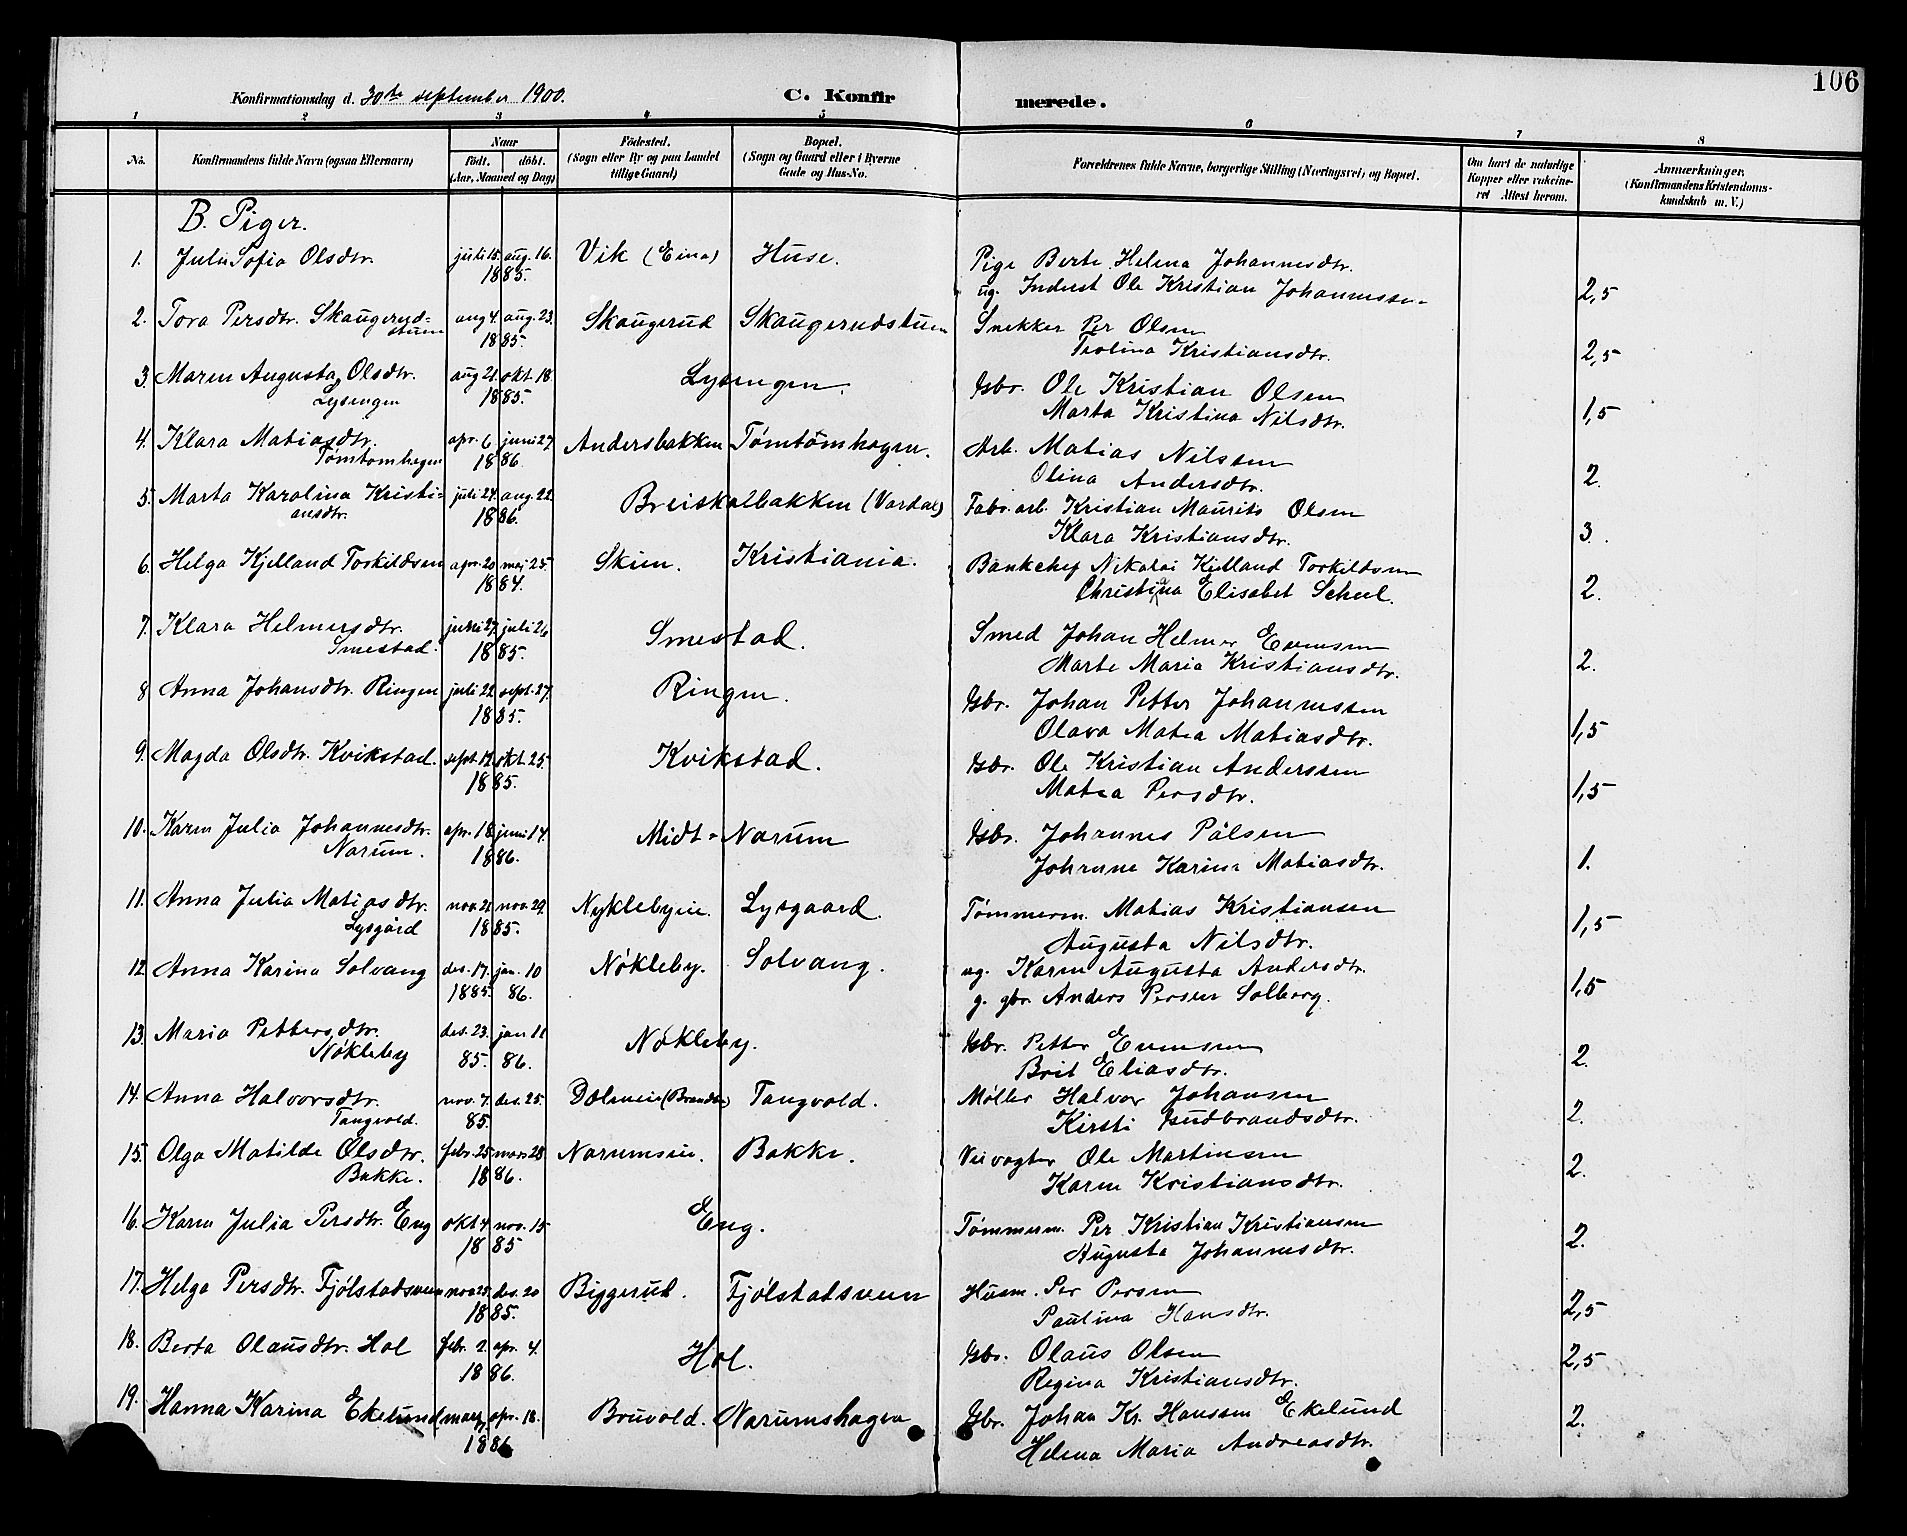 106
Konfirmationsdag d. 30te september 1900. C. Konfirmerede.
1 2 3 4 5 6 7 8
No. Konfirmandens fulde Navn (ogsaa Efternavn) Naar födt. döbt. (Aar, Maaned og Dag) Födested. (Sogn eller By og paa Landet tillige Gaard) Bopæl. (Sogn og Gaard eller i Byerne Gade og Hus-No. Forældrenes fulde Navne, borgerlige Stilling (Næringsvei) og Bopæl. Om havt de naturlige Kopper eller vakcineret Attest herom. Anmærkninger. (Konfirmandens Kristendomskundskab m. V.)
B. Piger.
1. Julie Sofia Olsdtr. juli 15. aug. 16. Vik (Eina) Huse. Pige Berte Helena Johannesdtr.
1885. ug. Inderst Ole Kristian Johannessen 2,5
2. Tora Persdtr. Skaugerud- aug 4. aug. 23. Skaugerud Skaugerudstuen Snekker Per Olsen
stuen 1885. Teolina Kristiansdtr. 2,5
3. Maren Augusta Olsdtr. aug 21. okt. 18 Lysengen. Gbr. Ole Kristian Olsen
Lysengen 1885. Marta Kristina Nilsdtr. 1,5
4. Klara Matiasdtr. apr. 6 juni 27 Andersbakken Tømtomhagen. Arb. Matias Nilssen
Tømtomhagen 1886. Olina Andersdtr. 2.
5. Marta Karolina Kristi- juli 24. aug. 22. Breiskalbakken (Vardal) Fabr. arb. Kristian Maurits Olsen
ansdtr. 1886. Klara Kristiansdtr. 3.
6. Helga Kjelland Torkildsen apr. 20 mej 25. Skien. Kristiania. Bankchef Nikolai Kjelland Torkildsen
1884. Christina Elisabet Scheel. 2.
7. Klara Helmersdtr. juni 27. juli 26 Smestad. Smed Johan Helmer Evensen
Smestad. 1885. Marte Maria Kristiansdtr. 2.
8 Anna Johansdtr. Ringen juli 22 sept. 27. Ringen. Gbr. Johan Petter Johannessen
1885. Olava Matea Matiasdtr. 1,5
9. Magda Olsdtr. Kvikstad. sept. 12. okt. 25. Kvikstad. Gbr. Ole Kristian Anderssen
1885. Matea Persdtr. 1,5
10. Karen Julia Johannesdtr. apr. 18. juni 14. Midt-Narum Gbr. Johannes Pålsen
Narum. 1886. Johanne Karina Matiasdtr. 1.
11. Anna Julia Matiasdtr. nov. 21. nov. 29. Nyklebyeie. Lysgaard. Tømmerm. Matias Kristiansen
Lysgård 1885. Augusta Nilsdtr. 1,5
12 Anna Karina Solvang des. 17. jan. 10 Nøkleby. Solvang. ug. Karen Augusta Andersdtr.
1885. 86. g. gbr. Anders Persen Solberg. 1,5
13. Maria Pettersdtr. des. 23. jan 11 Nøkleby. Gbr. Petter Evensen
Nøkleby 85. 86. Brit Eliasdtr. 2.
14. Anna Halvorsdtr. nov. 7. des. 25. Dæleneie (Brandbu) Tangvold. Møller Halvor Johansen
Tangvold. 85. Kirsti Gudbrandsdtr. 2.
15. Olga Matilde Olsdtr. febr. 25. mars 28 Narumseie. Bakke. Veivogter Ole Martinsen
Bakke. 1886. Karen Kristiansdtr. 2.
16. Karen Julia Persdtr. Eng okt 4 nov. 15 Eng. Tømmerm. Per Kristian Kristiansen
1885 Augusta Johannesdtr. 2.
17. Helga Persdtr. Fjølstadsveen nov 25. des. 20 Biggerud. Fjølstadsveen Husm. Per Persen
1885. Paulina Hansdtr. 2,5
18. Berta Olausdtr. Hol febr. 2. apr. 4. Hol. Gbr. Olaus Olsen
1886. Regina Kristiansdtr. 2,5
19. Hanna Karina Ekelund mars apr. 18. Bruvold. Narumshagen Gbr. Johan Kr. Hanssen Ekelund
1886 Helena Maria Andreasdtr. 2.